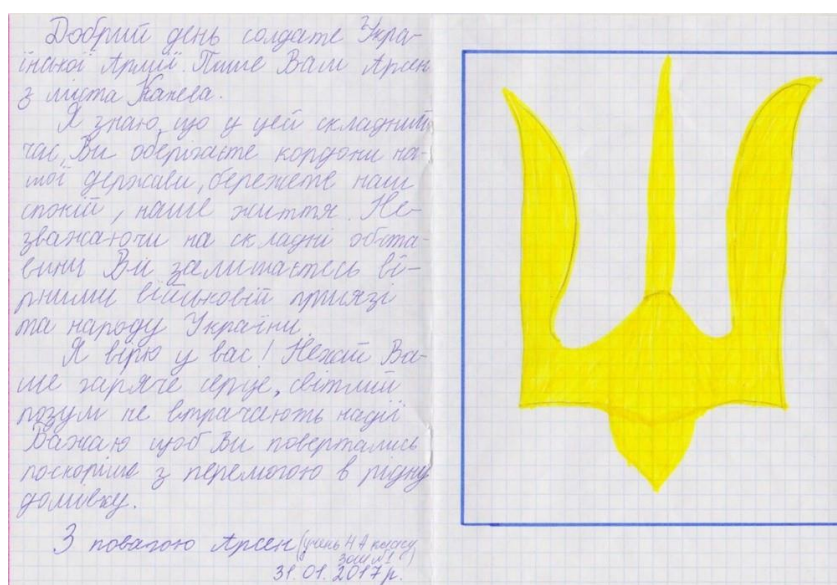 Добрий день солдате Укра-
їнської Армії. Пише Вам Арсен
з міста Канева.
Я знаю, що у цей складний
час, Ви оберігаєте кордони на-
шої держави, бережете наш
спокій, наше життя. Не-
зважаючи на складні обста-
вини Ви залишаєтесь ві-
рними військовій присязі
та народу України.
Я вірю у вас! Нехай Ва-
ше гаряче серце, світлий
розум не втрачають надії
Бажаю щоб Ви повертались
поскоріше з перемогою в рідну
домівку.
З повагою Арсен (учень 4 А класу
ЗОШ №1)
31.01.2017 р.